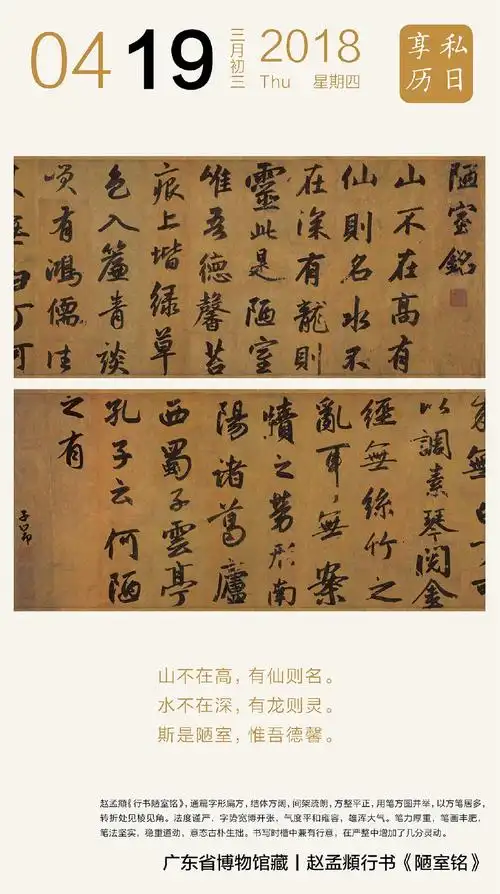 04 19
三月初三
2018
Thu 星期四
私享
日历
陋室銘
山不在高有
仙則名水不
在深有龍則
靈此是陋室
惟吾德馨苔
痕上堦緑草
色入簾青談
咲有鴻儒往
以調素琴閱金
經無絲竹之
亂耳無案
牘之勞形南
陽諸葛廬
西蜀子雲亭
孔子云何陋
之有
子昂
山不在高，有仙则名。
水不在深，有龙则灵。
斯是陋室，惟吾德馨。
赵孟頫《行书陋室铭》，通篇字形扁方，结体方阔，间架疏朗，方整平正，用笔方圆并举，以方笔居多，
转折处见棱见角。法度谨严，字势宽博开张，气度平和雍容，雄浑大气。笔力厚重，笔画丰肥，
笔法坚实，稳重遒劲，意态古朴生拙。书写时楷中兼有行意，在严整中增加了几分灵动。
广东省博物馆藏 | 赵孟頫行书《陋室铭》